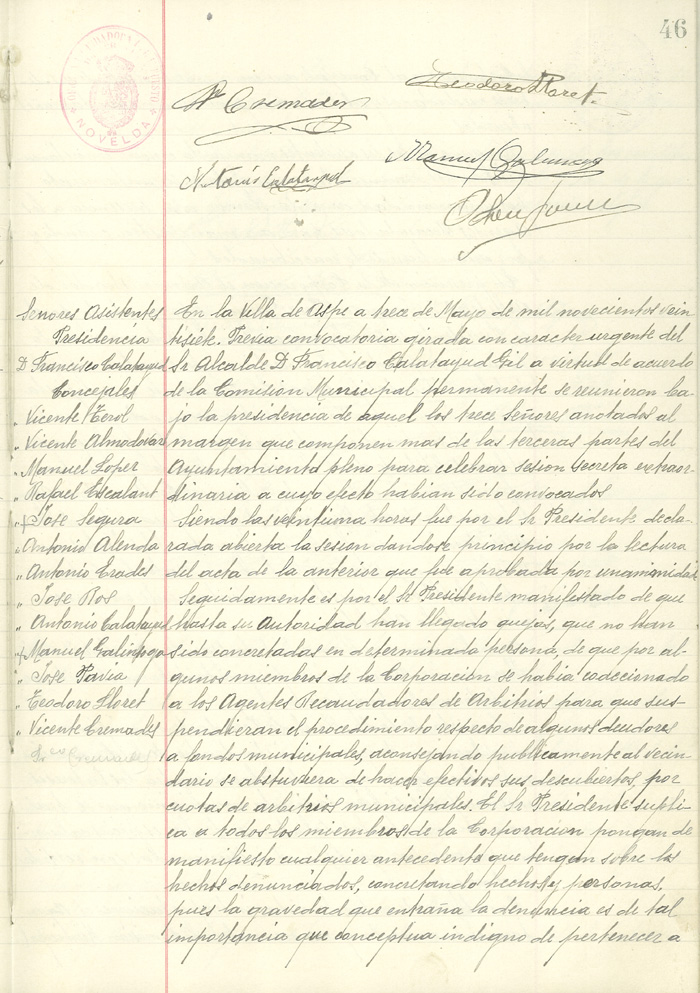 46
NOVELDA
Vte Cremades
Teodoro Lloret
Manuel Galinsoga
Antonio Calatayud
Señores Asistentes
Presidencia
D Francisco Calatayud
Concejales
" Vicente Terol
" Vicente Almodovar
" Manuel Lopez
" Rafael Escalant
" Jose Segura
" Antonio Alenda
" Antonio Erades
" Jose Ros
" Antonio Calatayud
" Manuel Galinsoga
" Jose Pavia
" Teodoro Lloret
" Vicente Cremades
En la Villa de Aspe a trece de Mayo de mil novecientos vein
tisiete. Previa convocatoria girada con caracter urgente del
Sr Alcalde D Francisco Calatayud Gil a virtud de acuerdo
de la Comision Municipal permanente se reunieron ba-
jo la presidencia de aquel los trece Señores anotados al
margen que componen mas de las terceras partes del
Ayuntamiento pleno para celebrar sesion secreta extraor-
dinaria a cuyo efecto habian sido convocados
Siendo las veintiuna horas fue por el Sr Presidente decla-
rada abierta la sesion dandose principio por la lectura
del acta de la anterior que fue aprobada por unanimidad
Seguidamente es por el Sr Presidente manifestado de que
hasta su Autoridad han llegado quejas, que no han
sido concretadas en determinada persona, de que por al-
gunos miembros de la Corporacion se habia coaccionado
a los Agentes Recaudadores de Arbitrios para que sus-
pendieran el procedimiento respecto de algunos deudores
a fondos municipales, aconsejando publicamente al vecin-
dario se abstuviera de hacer efectivos sus descubiertos, por
cuotas de arbitrios municipales. El Sr Presidente supli-
ca a todos los miembros de la Corporacion pongan de
manifiesto cualquier antecedente que tengan sobre los
hechos denunciados, concretando hechos y personas,
pues la gravedad que entraña la denuncia es de tal
importancia que conceptua indigno de pertenecer a